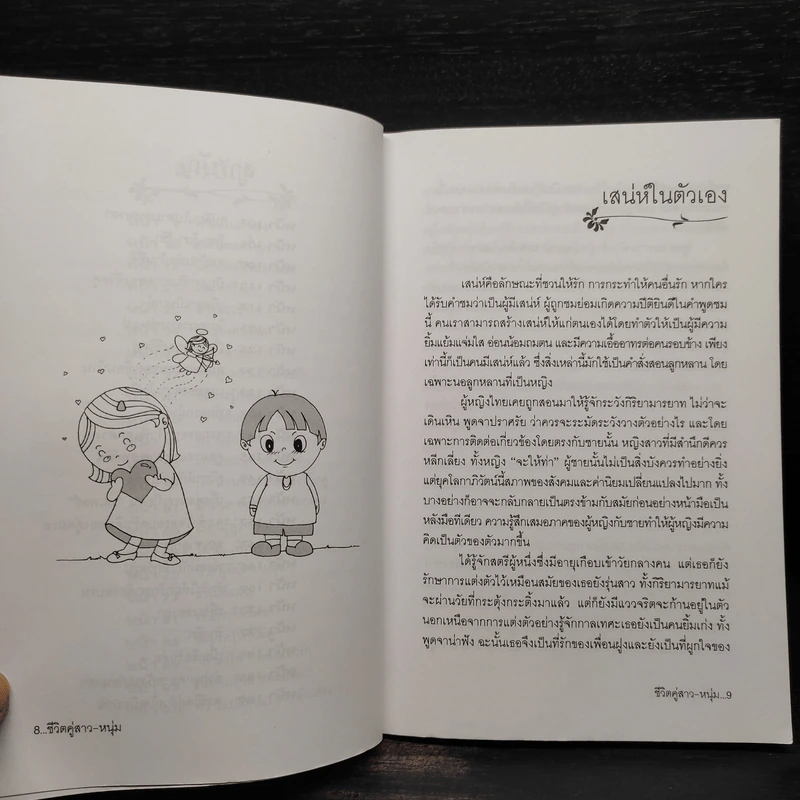 8...ชีวิตคู่สาว-หนุ่ม
เสน่ห์ในตัวเอง
เสน่ห์คือลักษณะที่ชวนให้รัก การกระทำให้คนอื่นรัก หากใคร
ได้รับคำชมว่าเป็นผู้มีเสน่ห์ ผู้ถูกชมย่อมเกิดความปีติยินดีในคำพูดชม
นี้ คนเราสามารถสร้างเสน่ห์ให้แก่ตนเองได้โดยทำตัวให้เป็นผู้มีความ
ยิ้มแย้มแจ่มใส อ่อนน้อมถมตน และมีความเอื้ออาทรต่อคนรอบข้าง เพียง
เท่านี้ก็เป็นคนมีเสน่ห์แล้ว ซึ่งสิ่งเหล่านี้มักใช้เป็นคำสั่งสอนลูกหลาน โดย
เฉพาะนอลูกหลานที่เป็นหญิง
ผู้หญิงไทยเคยถูกสอนมาให้รู้จักระวังกิริยามารยาท ไม่ว่าจะ
เดินเหิน พูดจาปราศรัย ว่าควรจะระมัดระวังวางตัวอย่างไร และโดย
เฉพาะการติดต่อเกี่ยวข้องโดยตรงกับชายนั้น หญิงสาวที่มีสำนึกดีควร
หลีกเลี่ยง ทั้งหญิง “จะให้ท่า” ผู้ชายนั้นไม่เป็นสิ่งบังควรทำอย่างยิ่ง
แต่ยุคโลกาภิวัตน์นี้สภาพของสังคมและค่านิยมเปลี่ยนแปลงไปมาก ทั้ง
บางอย่างก็อาจจะกลับกลายเป็นตรงข้ามกับสมัยก่อนอย่างหน้ามือเป็น
หลังมือทีเดียว ความรู้สึกเสมอภาคของผู้หญิงกับชายทำให้ผู้หญิงมีความ
คิดเป็นตัวของตัวมากขึ้น
ได้รู้จักสตรีผู้หนึ่งซึ่งมีอายุเกือบเข้าวัยกลางคน แต่เธอก็ยัง
รักษาการแต่งตัวไว้เหมือนสมัยของเธอยังรุ่นสาว ทั้งกิริยามารยาทแม้
จะผ่านวัยที่กระตุ้งกระติ้งมาแล้ว แต่ก็ยังมีแววจริตจะก้านอยู่ในตัว
นอกเหนือจากการแต่งตัวอย่างรู้จักกาลเทศะเธอยังเป็นคนยิ้มเก่ง ทั้ง
พูดจาน่าฟัง ฉะนั้นเธอจึงเป็นที่รักของเพื่อนฝูงและยังเป็นที่ผูกใจของ
ชีวิตคู่สาว-หนุ่ม...9